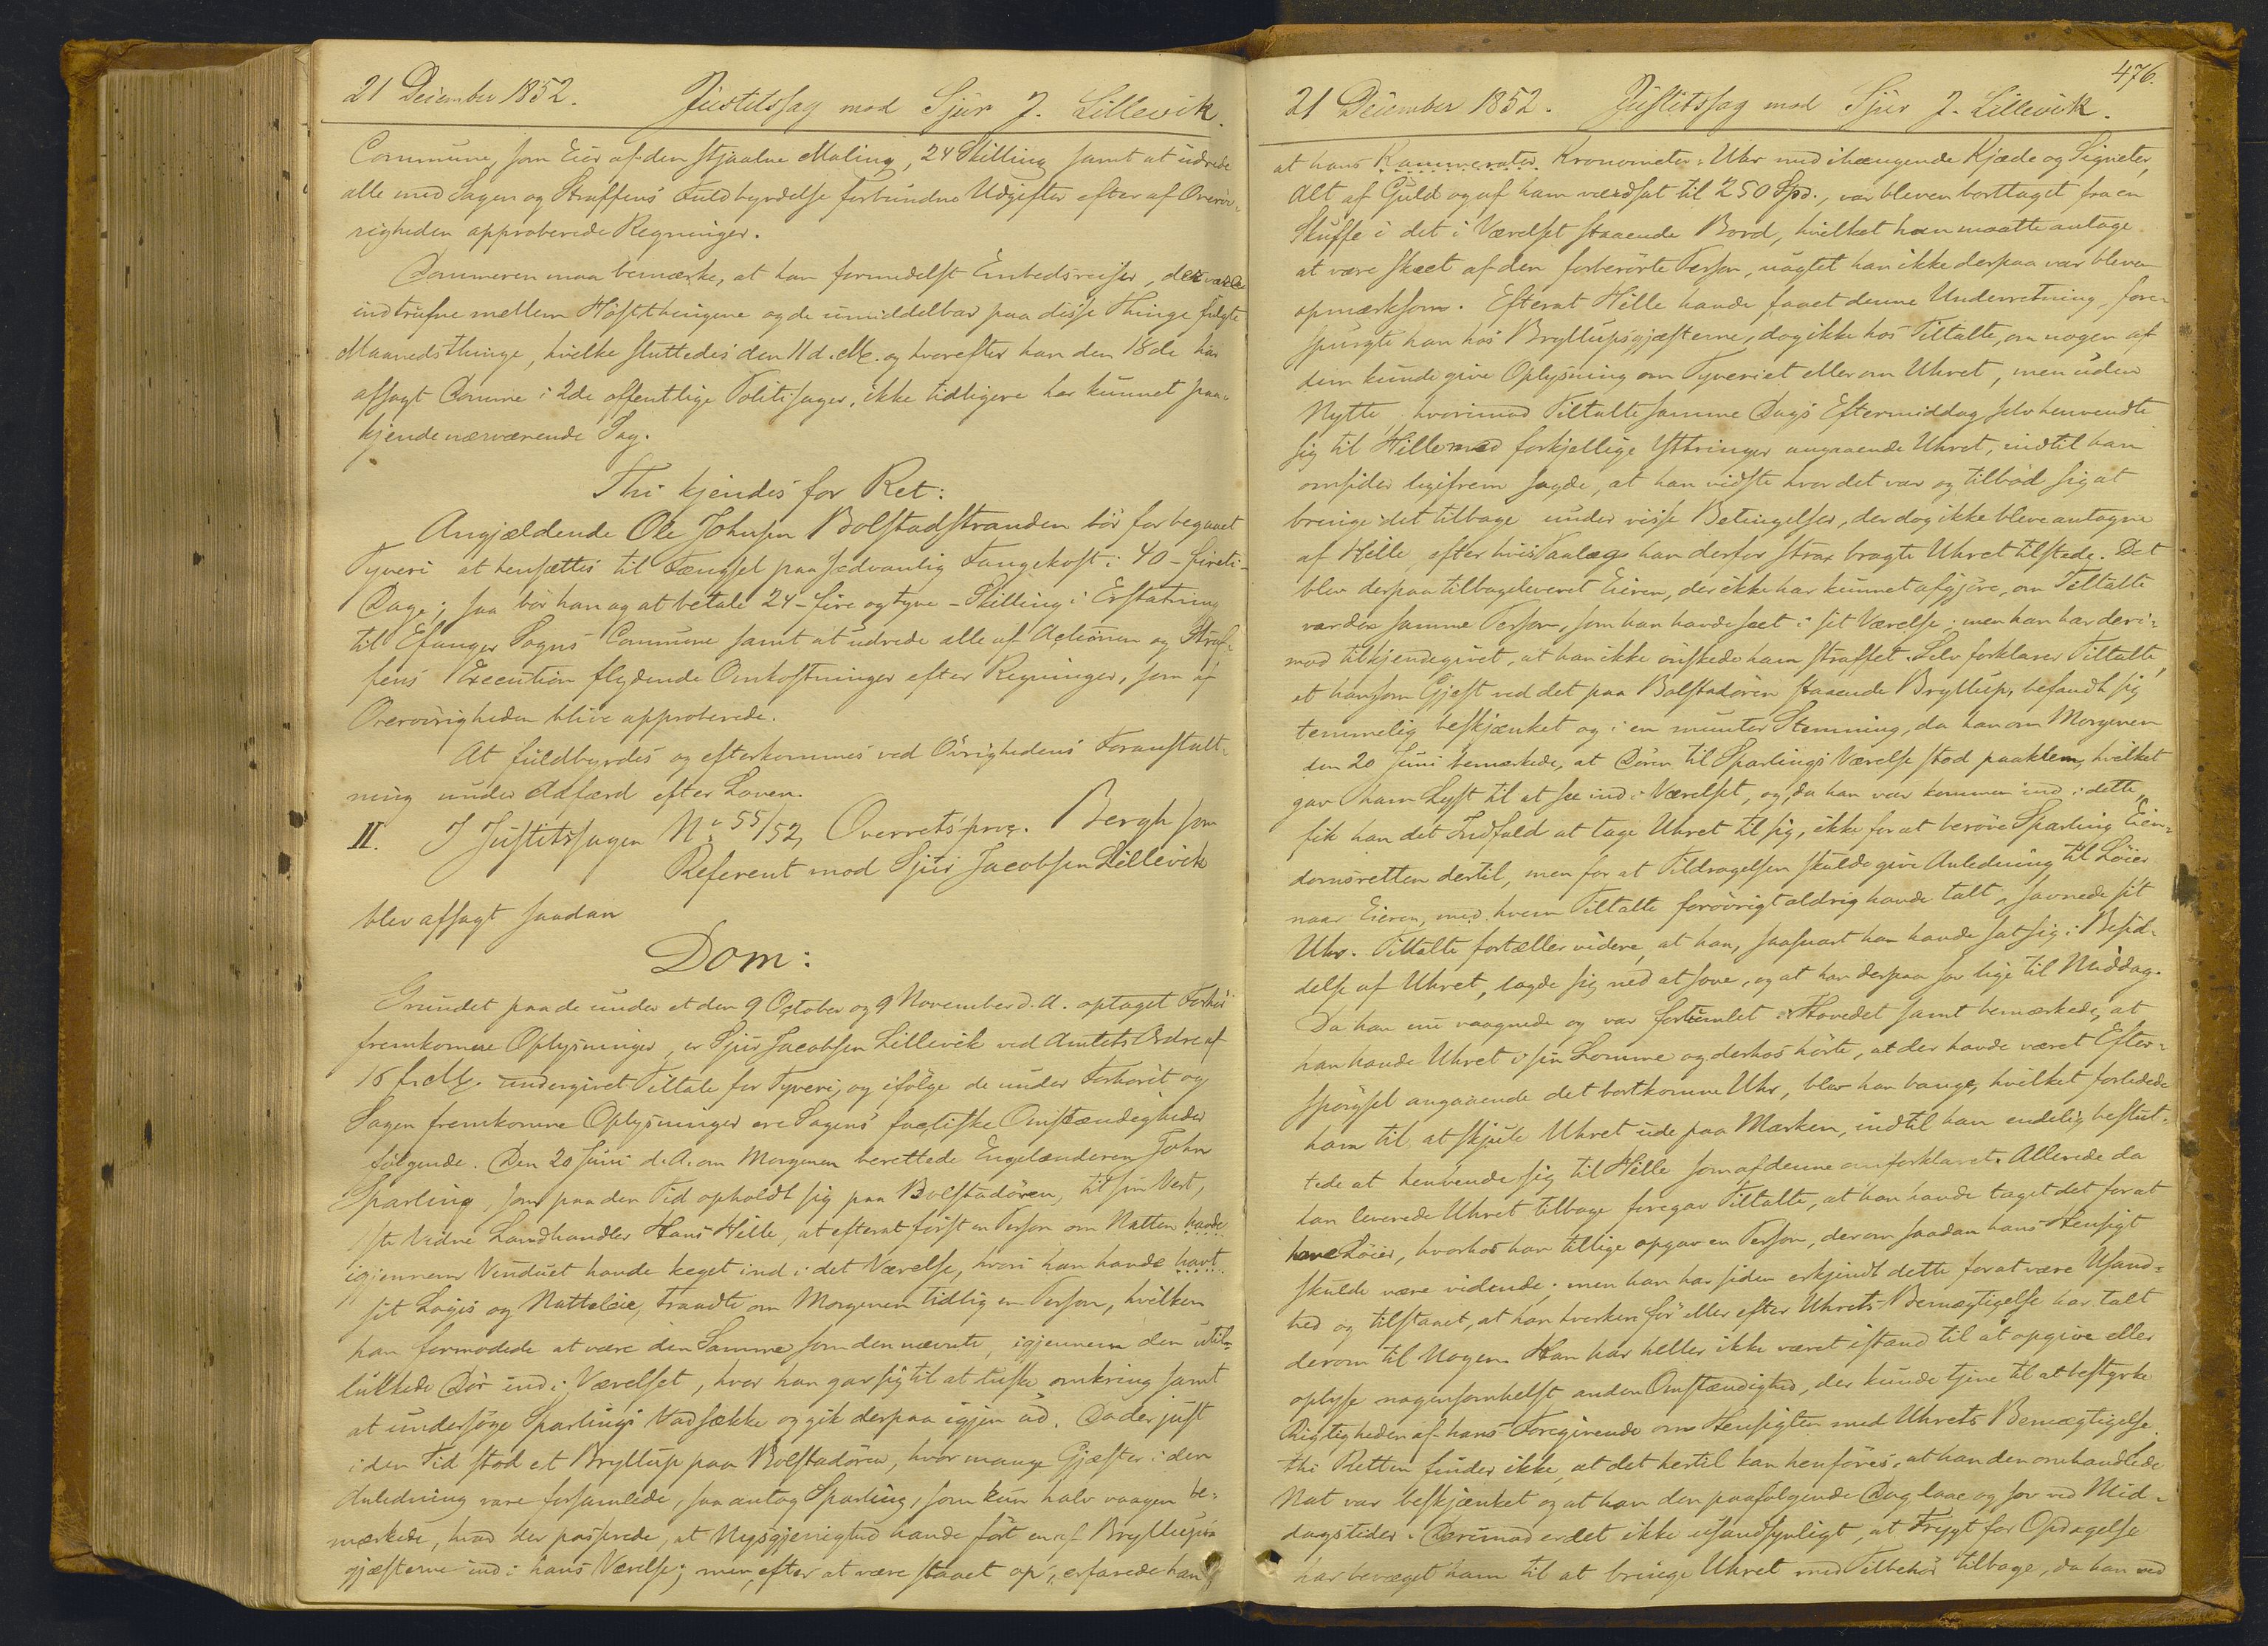 21 December 1852. Justitssag mod Sjur J. Lillevik.
Commune, som Eier af den stjaalne Maling, 24 Skilling samt at udrede
alle med Sagen og Straffens Fuldbyrdelse forbundne Udgifter efter af Overøv-
righeden approberede Regninger.
Dommeren maa bemærke, at han formedelst Embedsreiser, der vare
indtrufne mellem Høstthingene og de umiddelbar paa disse Thinge fulgte
Maanedsthinge, hvilke sluttedes den 11 d. M. og hvorefter han den 18de har
afsagt Domme i 2de offentlige Politisager, ikke tidligere har kunnet paa-
kjende nærværende Sag.
Thi kjendes for Ret:
Angjældende Ole Johnsen Bolstadstranden bør for begaaet
Tyveri at hensættes til Fængsel paa sædvanlig Fangekost i 40 - fireti -
Dage; saa bør han og at betale 24 - fire og tyve - Skilling i Erstatning
til Evanger Sogns Commune samt at udrede alle af Actionen og Straf-
fens Execution flydende Omkostninger efter Regninger, som af
Overøvrigheden blive approberede.
At fuldbyrdes og efterkommes ved Øvrighedens Foranstalt-
ning under Adfærd efter Loven.
II. I Justitssagen No 55/52, Overretsproc. Bergh som
Referent mod Sjur Jacobsen Lillevik
blev afsagt saadan
Dom:
Grundet paa de under et den 9 October og 9 November d. A. optaget Forhør
fremkomne Oplysninger er Sjur Jacobsen Lillevik ved Amtets Ordre af
16 f. M. undergivet Tiltale for Tyveri, og ifølge de under Forhørit og
Sagen fremkomne Oplysninger ere Sagens factiske Omstændigheder
følgende. Den 20 Juni d. A. om Morgenen berettede Engelænderen John
Sparling, som paa den Tid opholdt sig paa Bolstadøren, til sin Vert,
1ste Vidne Landhandler Hans Hille, at efterat først en Person om Natten havde
igjennem Vinduet havde keget ind i det Værelse, hvori han havde havt
sit Logis og Natteleie, traadte om Morgenen tidlig en Person, hvilken
han formodede at være den Samme som den nævnte, igjennem den util-
lukkede Dør ind i Værelset, hvor han gav sig til at luske omkring samt
at undersøge Sparlings Vadsække og gik derpaa igjen ud. Da der just
i den Tid stod et Bryllup paa Bolstadøren, hvor mange Gjæster i den
Anledning vare forsamlede, saa antog Sparling, som kun halv vaagen be-
mærkede, hvad der passerede, at Nysgjerrighed havde ført en af Bryllups-
gjæsterne ind i hans Værelse; men efter at være staaet op, erfarede han
476.
21 December 1852. Justitssag mod Sjur J. Lillevik.
at hans Kammerater Kronometer-Uhr med ihængende Kjæde og Signeter,
Alt af Guld og af ham værdsat til 250 Spd., var bleven borttaget fra en
Skuffe i det i Værelset staaende Bord, hvilket han maatte antage
at være skeet af den forberørte Person, uagtet han ikke derpaa var bleven
opmærksom. Efterat Hille havde faaet denne Underretning, fore-
spurgte han hos Bryllupsgjæsterne, dog ikke hos Tiltalte, om nogen af
dem kunde give Oplysning om Tyveriet eller om Uhret, men uden
Nytte, hvorimod Tiltalte samme Dags Eftermiddag selv henvendte
sig til Hille med forskjellige Yttringer angaaende Uhret, indtil han
omsider ligefrem sagde, at han vidste hvor det var og tilbød sig at
bringe det tilbage under visse Betingelser, der dog ikke bleve antagne
af Hille efter hvis Paalæg han derfor strax bragte Uhret tilstede. Det
blev derpaa tilbageleveret Eieren, der ikke har kunnet afgjøre, om Tiltalte
var den samme Person, som han havde seet i sit Værelse; men han har deri-
mod tilkjendegivet, at han ikke ønskede ham straffet. Selv forklarer Tiltalte,
at han som Gjest ved det paa Bolstadøren staaende Bryllup, befandt sig
temmelig beskjænket og i en munter Stemning, da han om Morgenen
den 20 Juni bemærkede, at Døren til Sparlings Værelse stod paaklem, hvilket
gav ham Lyst til at see ind i Værelset, og, da han var kommen ind i dette,
fik han det Indfald at tage Uhret til sig, ikke for at berøve Sparling Eien-
domsretten dertil, men for at Tildragelsen skulde give Anledning til Løier
naar Eieren, med hvem Tiltalte forøvrigt aldrig havde talt, savnede sit
Uhr. Tiltalte fortæller videre, at han, saasnart han havde sat sig i Besid-
delse af Uhret, lagde sig ned at sove, og at han derpaa sov lige til Middag.
Da han nu vaagnede og var fortumlet i Hovedet samt bemærkede, at
han havde Uhret i sin Lomme og derhos hørte, at der havde været Efter-
spørgsel angaaende det bortkomne Uhr, blev han bange, hvilket forledede
ham til at skjule Uhret ude paa Marken, indtil han endelig beslut-
tede at henvende sig til Hille som af denne omforklaret. Allerede da
han leverede Uhret tilbage foregav Tiltalte, at han havde taget det for at
have Løier, hvorhos han tillige opgav en Person, der om saadan hans Hensigt
skulde være vidende; men han har siden erkjendt dette for at være Usand-
hed og tilstaaet, at han hverken før eller efter Uhrets Bemægtigelse har talt
derom til Nogen. Han har heller ikke været istand til at opgive eller
oplyse nogensomhelst anden Omstændighed, der kunde tjene til at bestyrke
Rigtigheden af hans Foregivende om Hensigten med Uhrets Bemægtigelse.
thi Retten finder ikke, at det hertil kan henføres, at han den omhandlede
Nat var beskjænket og at han den paafølgende Dag laae og sov ved Mid-
dagstider. Derimod er det ikke usandsynligt, at Frygt for Opdagelse
har bevæget ham til at bringe Uhret med Tilbehør tilbage, da han ved